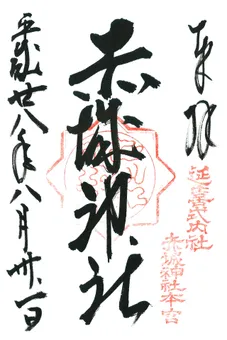 奉拝
延喜式内社
赤城神社本宮
赤城神社
平成廿八年八月卅一日